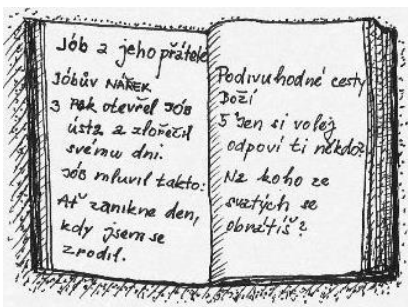 Jób a jeho přátelé
Jóbův NÁŘEK
3 Pak otevřel JÓB
ústa a zlořečil
svému dni.
JÓB mluvil takto:
Ať zanikne den,
kdy jsem se
zrodil.
Podivuhodné cesty
Boží
5 Jen si volej
odpoví ti někdo?
Na koho ze
svatých se
obrátíš?